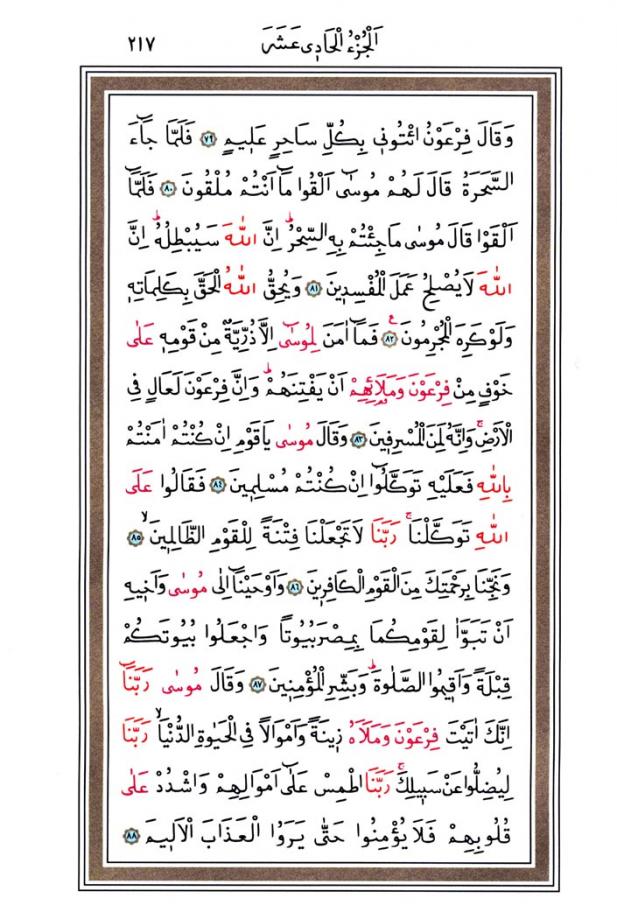 اَلْجُزْءُ الْحَادِى عَشَرَ ٢١٧
وَقَالَ فِرْعَوْنُ ائْتُونٖى بِكُلِّ سَاحِرٍ عَلٖيمٍ ﴿٧٩﴾ فَلَمَّا جَٓاءَ
السَّحَرَةُ قَالَ لَهُمْ مُوسٰٓى اَلْقُوا مَٓا اَنْتُمْ مُلْقُونَ ﴿٨٠﴾ فَلَمَّٓا
اَلْقَوْا قَالَ مُوسٰى مَا جِئْتُمْ بِهِ السِّحْرُۜ اِنَّ اللّٰهَ سَيُبْطِلُهُۜ اِنَّ
اللّٰهَ لَا يُصْلِحُ عَمَلَ الْمُفْسِدٖينَ ﴿٨١﴾ وَيُحِقُّ اللّٰهُ الْحَقَّ بِكَلِمَاتِهٖ
وَلَوْ كَرِهَ الْمُجْرِمُونَ ﴿٨٢﴾ فَمَٓا اٰمَنَ لِمُوسٰٓى اِلَّا ذُرِّيَّةٌ مِنْ قَوْمِهٖ عَلٰى
خَوْفٍ مِنْ فِرْعَوْنَ وَمَلَا۬ئِهِمْ اَنْ يَفْتِنَهُمْۜ وَاِنَّ فِرْعَوْنَ لَعَالٍ فِى
الْاَرْضِۚ وَاِنَّهُ لَمِنَ الْمُسْرِفٖينَ ﴿٨٣﴾ وَقَالَ مُوسٰى يَا قَوْمِ اِنْ كُنْتُمْ اٰمَنْتُمْ
بِاللّٰهِ فَعَلَيْهِ تَوَكَّلُٓوا اِنْ كُنْتُمْ مُسْلِمٖينَ ﴿٨٤﴾ فَقَالُوا عَلَى
اللّٰهِ تَوَكَّلْنَاۚ رَبَّنَا لَا تَجْعَلْنَا فِتْنَةً لِلْقَوْمِ الظَّالِمٖينَۙ ﴿٨٥﴾
وَنَجِّنَا بِرَحْمَتِكَ مِنَ الْقَوْمِ الْكَافِرٖينَ ﴿٨٦﴾ وَاَوْحَيْنَٓا اِلٰى مُوسٰى وَاَخٖيهِ
اَنْ تَبَوَّاٰ لِقَوْمِكُمَا بِمِصْرَ بُيُوتًا وَاجْعَلُوا بُيُوتَكُمْ
قِبْلَةً وَاَقٖيمُوا الصَّلٰوةَۜ وَبَشِّرِ الْمُؤْمِنٖينَ ﴿٨٧﴾ وَقَالَ مُوسٰى رَبَّنَٓا
اِنَّكَ اٰتَيْتَ فِرْعَوْنَ وَمَلَاَهُ زٖينَةً وَاَمْوَالًا فِى الْحَيٰوةِ الدُّنْيَاۙ رَبَّنَا
لِيُضِلُّوا عَنْ سَبٖيلِكَۚ رَبَّنَا اطْمِسْ عَلٰٓى اَمْوَالِهِمْ وَاشْدُدْ عَلٰى
قُلُوبِهِمْ فَلَا يُؤْمِنُوا حَتّٰى يَرَوُا الْعَذَابَ الْاَلٖيمَ ﴿٨٨﴾